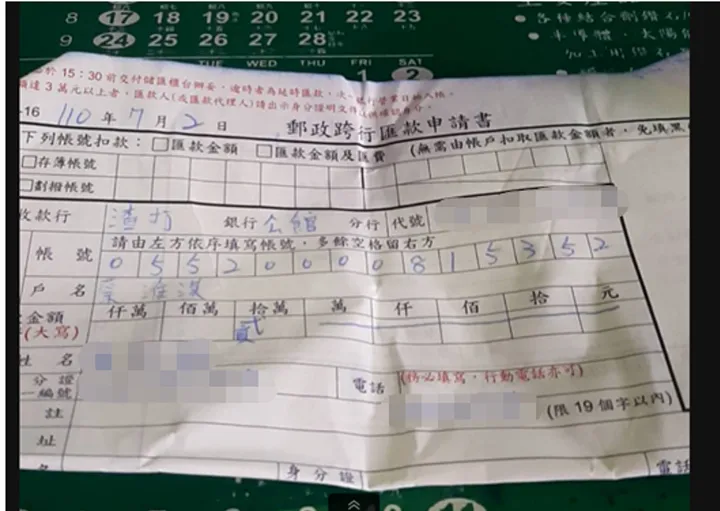 8 17 18 19 20 21 22 23
9 24 25 26 27 28
TUE WED THU FRI SAT
1 2
各種結合劑鑽石
半導體、太陽能
於15:30前交付儲匯櫃台辦妥,逾時者為延時匯款,次一銀行營業日始入帳。
達3萬元以上者,匯款人(或匯款代理人)請出示身分證明文件以供確認身分。
-16 110年7月2日 郵政跨行匯款申請書
下列帳號扣款:□匯款金額 □匯款金額及匯費 (無需由帳戶扣取匯款金額者,免填黑
□存簿帳號
□劃撥帳號
收款行 渣打 銀行 公館 分行 代號
帳號 請由左方依序填寫帳號,多餘空格留右方
0 5 5 2 0 0 0 0 8 1 5 3 5 2
戶名
金額 仟萬 佰萬 拾萬 萬 仟 佰 拾 元
(大寫) 貳
姓名
分證 電話 (務必填寫,行動電話亦可)
編號
註 (限19個字以內)
址
名 身分證 電話